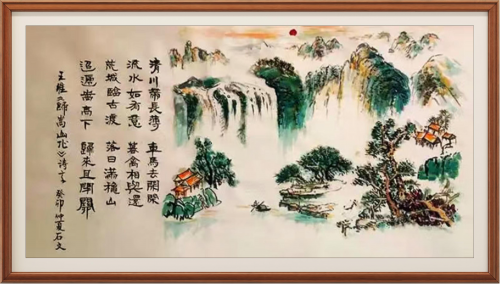 清川帶長薄　車馬去閑閑
流水如有意　暮禽相與還
荒城臨古渡　落日滿穐山
迢遞嵩高下　歸來且閉關
王維歸嵩山作詩意　癸卯仲夏石文